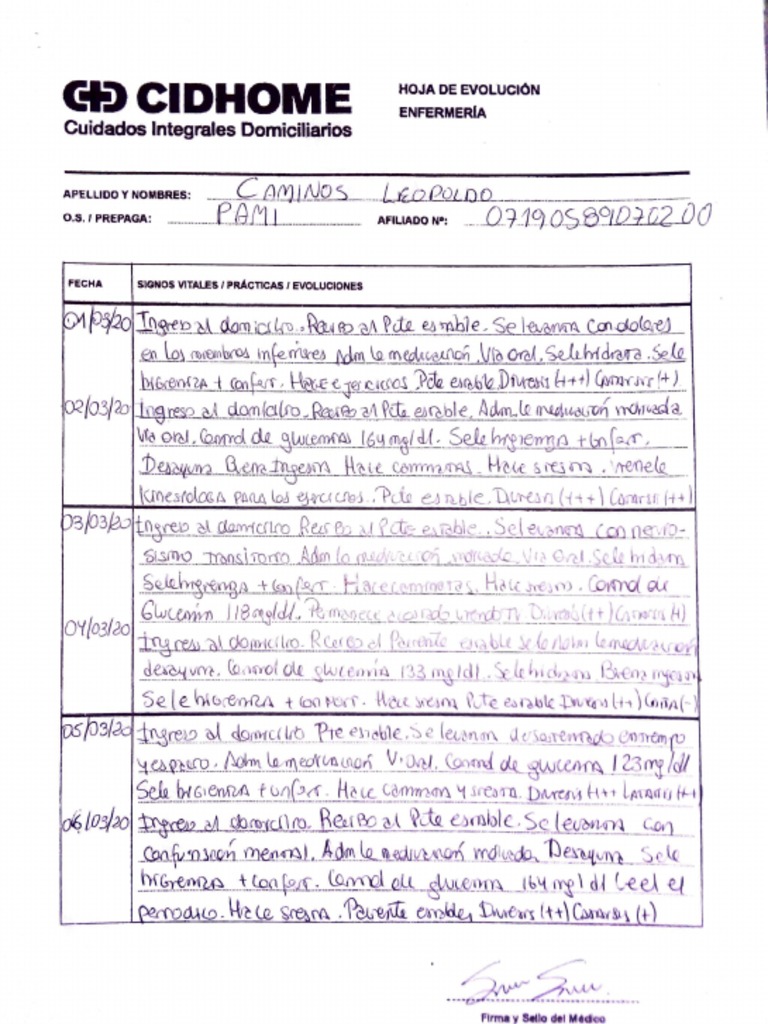 CIDHOME
Cuidados Integrales Domiciliarios
HOJA DE EVOLUCIÓN
ENFERMERÍA
APELLIDO Y NOMBRES: CAMINOS LEOPOLDO
O.S. / PREPAGA: PAMI AFILIADO Nº: 07190589070200
FECHA SIGNOS VITALES / PRÁCTICAS / EVOLUCIONES
01/03/20 Ingreso al domicilio. Recibo al Pcte estable. Se levanta con dolores
en los miembros inferiores Adm la medicación. Via Oral. Se le hidrata. Se le
higieniza + confort. Hace ejercicios Pcte estable Diuresis (+++) Catarsis (+)
02/03/20 Ingreso al domicilio. Recibo al Pcte estable. Adm. le medicación indicada
Via Oral. Control de glucemia 164 mg/dl. Se le higieniza + Confort.
Desayuna Buena Ingesta Hace caminatas. Hace siesta. viene le
Kinesiologa para los ejercicios. Pcte estable. Diuresis (+++) Catarsis (++)
03/03/20 Ingreso al domicilio Recibo al Pcte estable. Se levanta con nervio-
sismo transitorio Adm la medicación indicada. Via Oral. Se le hidrata
Se le higieniza + Confort. Hace caminatas. Hace siesta. Control de
Glucemia 118 mg/dl. Permanece acostado viendo TV. Diuresis (++) Catarsis (+)
04/03/20 Ingreso al domicilio. Recibo al Paciente estable se le Adm le medicación
desayuna. Control de glucemia 133 mg/dl. Se le hidrata Buena ingesta
Se le higieniza + Confort. Hace siesta Pcte estable Diuresis (++) (-)
05/03/20 Ingreso al domicilio Pte estable. Se levanta desorientado en tiempo
y espacio. Adm le medicación V. Oral. Control de glucemia 123 mg/dl
Se le higieniza + Confort. Hace Caminata y siesta. Diuresis (++) Catarsis (++)
06/03/20 Ingreso al domicilio. Recibo al Pcte estable. Se levanta con
Confunsión mental. Adm le medicación indicada. Desayuna Se le
higieniza + Confort. Control de glucemia 164 mg/dl Leel el
periodico. Hace siesta. Paciente estable, Diuresis (++) Catarsis (+)
Firma y Sello del Médico